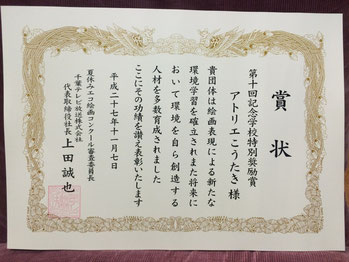 賞状
第十回記念学校特別奨励賞
アトリエこうたき様
貴団体は絵画表現による新たな
環境学習を確立されまた将来に
おいて環境を自ら創造する
人材を多数育成されました
ここにその功績を讃え表彰いたします
平成二十七年十一月七日
夏休みエコ絵画コンクール審査委員長
千葉テレビ放送株式会社
代表取締役社長 上田誠也